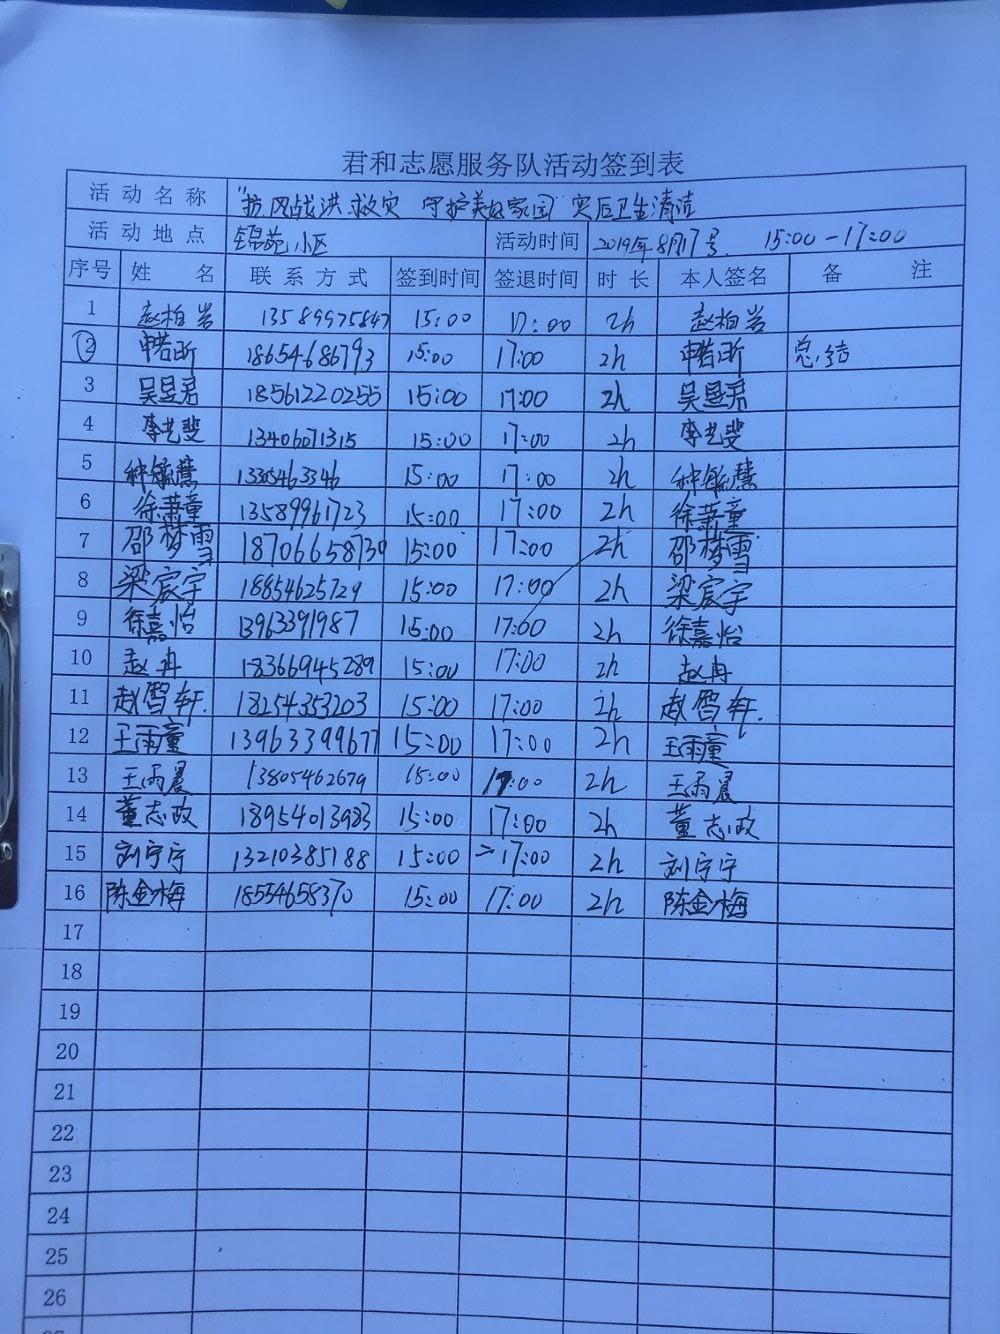 君和志愿服务队活动签到表
活动名称 "抗风战洪救灾 守护美好家园" 灾后卫生清洁
活动地点 锦苑小区 活动时间 2019年8月17号 15:00-17:00
序号 姓名 联系方式 签到时间 签退时间 时长 本人签名 备注
1 赵柏岩 13589975847 15:00 17:00 2h 赵柏岩
2 申若昕 18654686793 15:00 17:00 2h 申若昕 总结
3 吴昱君 18561220255 15:00 17:00 2h 吴昱君
4 李艺斐 13406071315 15:00 17:00 2h 李艺斐
5 种毓慧 13305463346 15:00 17:00 2h 种毓慧
6 徐萧童 13589961723 15:00 17:00 2h 徐萧童
7 邵梦雪 18706658730 15:00 17:00 2h 邵梦雪
8 梁宸宇 18854625729 15:00 17:00 2h 梁宸宇
9 徐嘉怡 13963391987 15:00 17:00 2h 徐嘉怡
10 赵冉 18366945289 15:00 17:00 2h 赵冉
11 赵雪轩. 18254353203 15:00 17:00 2h 赵雪轩.
12 王雨童 13963399677 15:00 17:00 2h 王雨童
13 王雨晨 13805462679 15:00 17:00 2h 王雨晨
14 董志政 18954013983 15:00 17:00 2h 董志政
15 刘宁宁 13210385188 15:00 17:00 2h 刘宁宁
16 陈金梅 18554658370 15:00 17:00 2h 陈金梅
17
18
19
20
21
22
23
24
25
26